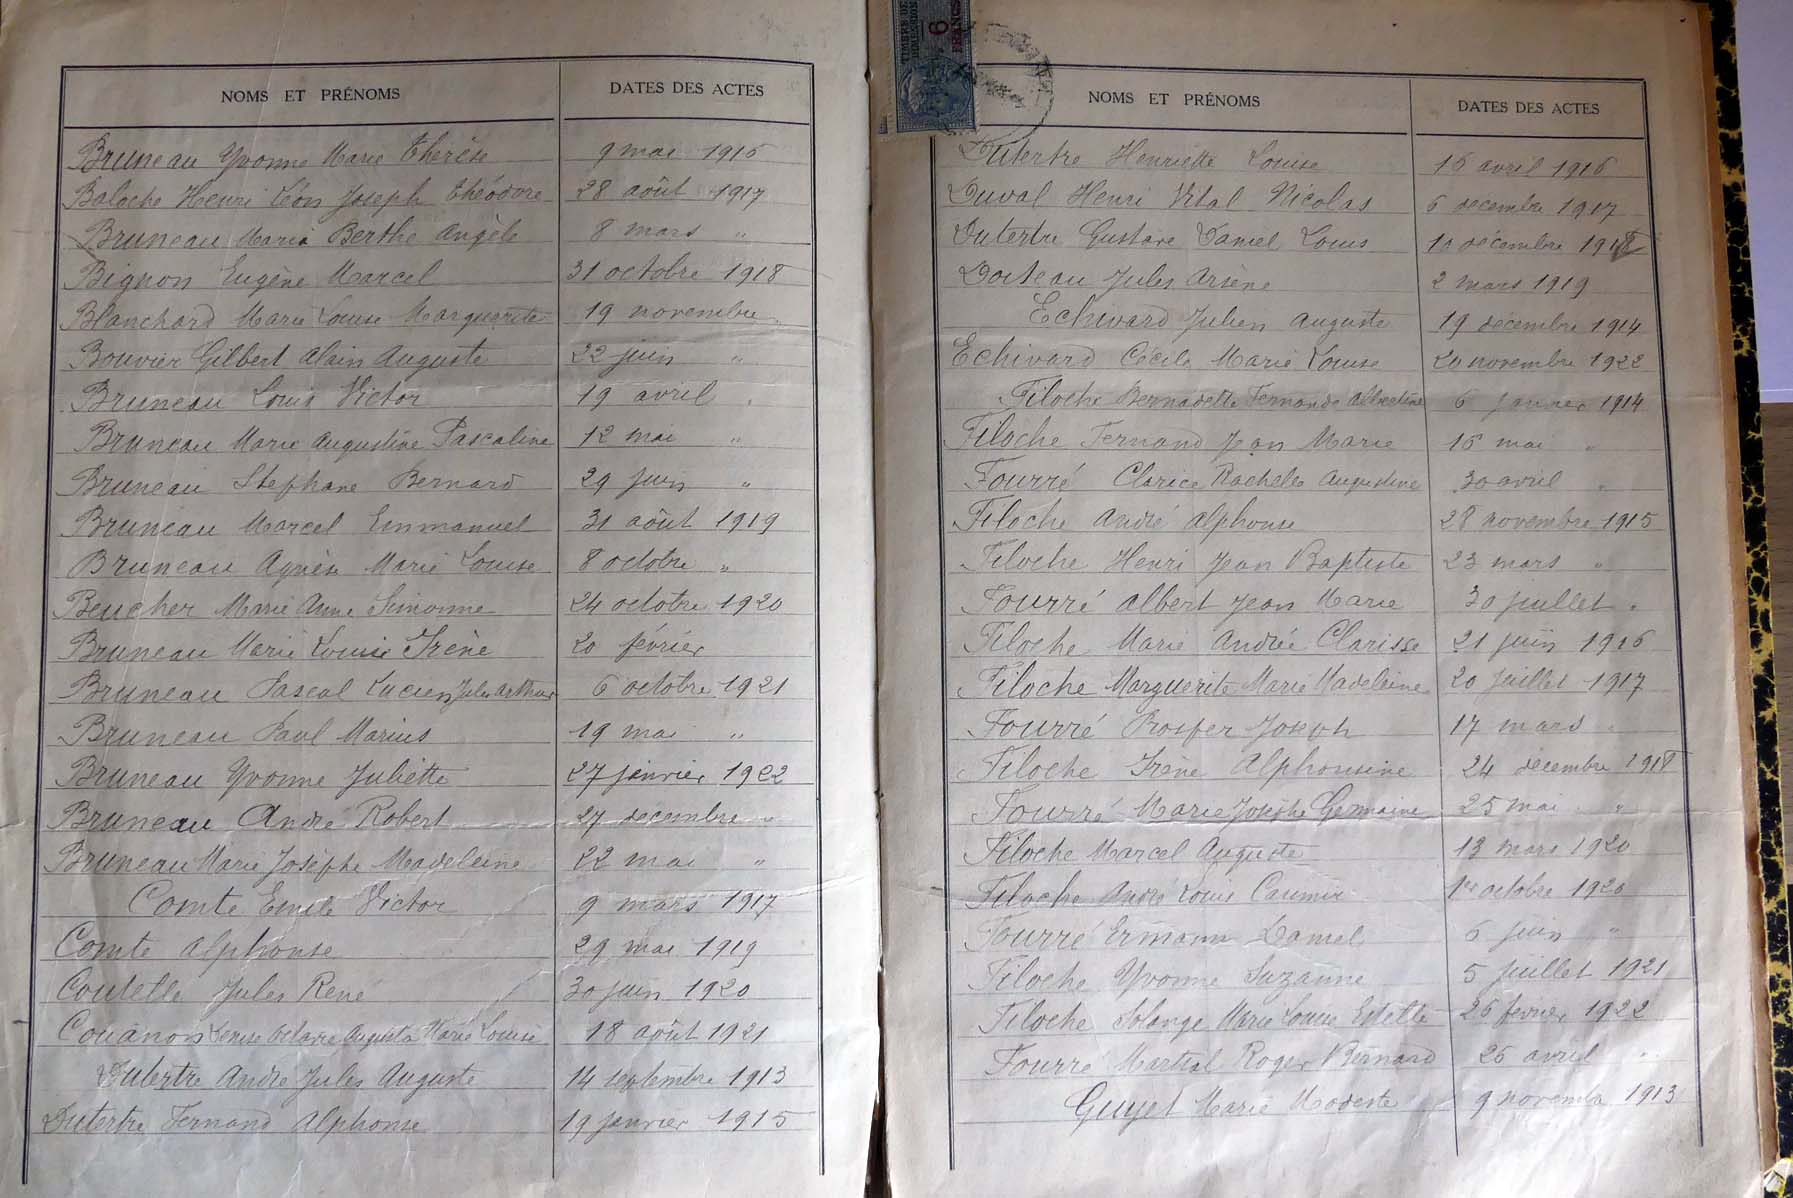 NOMS ET PRÉNOMS DATES DES ACTES
Bruneau Yvonne Marie Thérèse 9 mai 1916
Baloche Henri Léon Joseph Théodore 28 août 1917
Bruneau Maria Berthe Angèle 8 mars "
Bignon Eugène Marcel 31 octobre 1918
Blanchard Marie Louise Marguerite 19 novembre "
Bouvier Gilbert Alain Auguste 22 juin "
Bruneau Louis Victor 19 avril "
Bruneau Marie Augustine Pascaline 12 mai "
Bruneau Stephane Bernard 29 juin "
Bruneau Marcel Emmanuel 31 août 1919
Bruneau Agnèse Marie Louise 8 octobre "
Beucher Marie Anne Simonne 24 octobre 1920
Bruneau Marie Louise Irène 20 février
Bruneau Pascal Lucien Jules Arthur 6 octobre 1921
Bruneau Paul Marius 19 mai "
Bruneau Yvonne Juliette 27 janvier 1922
Bruneau André Robert 27 décembre "
Bruneau Marie Josèphe Madeleine 22 mai "
Comte Emile Victor 9 mars 1917
Comte Alphonse 29 mai 1919
Coutelle Jules René 30 juin 1920
Couanon Octavie Augusta Marie Louise 18 août 1921
Dutertre André Jules Auguste 14 septembre 1913
Dutertre Fernand Alphonse 19 janvier 1915
6 FRANCS
NOMS ET PRÉNOMS DATES DES ACTES
Dutertre Henriette Louise 16 avril 1916
Duval Henri Vital Nicolas 6 décembre 1917
Dutertre Gustave Daniel Louis décembre 1918
Doiteau Jules Arsène 2 mars 1919
Echivard Julien Auguste 19 décembre 1914
Echivard Cécile Marie Louise 20 novembre 1922
Filoche Bernadette Fernande Albertine 6 janvier 1914
Filoche Fernand Jean Marie 16 mai "
Fourré Clarice Rachele Augustine 30 avril "
Filoche André Alphonse 28 novembre 1915
Filoche Henri Jean Baptiste 23 mars "
Fourré Albert Jean Marie 30 juillet "
Filoche Marie Andrée Clarisse 21 juin 1916
Filoche Marguerite Marie Madeleine 20 juillet 1917
Fourré Prosper Joseph 17 mars "
Filoche Irène Alphonsine 24 décembre 1918
Fourré Marie Josèphe Germaine 25 mai "
Filoche Marcel Auguste 13 mars 1920
Filoche André Louis Casimir 1er octobre 1920
Fourré Ermann Daniel 6 juin "
Filoche Yvonne Suzanne 5 juillet 1921
Filoche Solange Marie Louise Estelle 26 février 1922
Fourré Martial Roger Bernard 26 avril "
Guyet Marie Modeste 9 novembre 1913